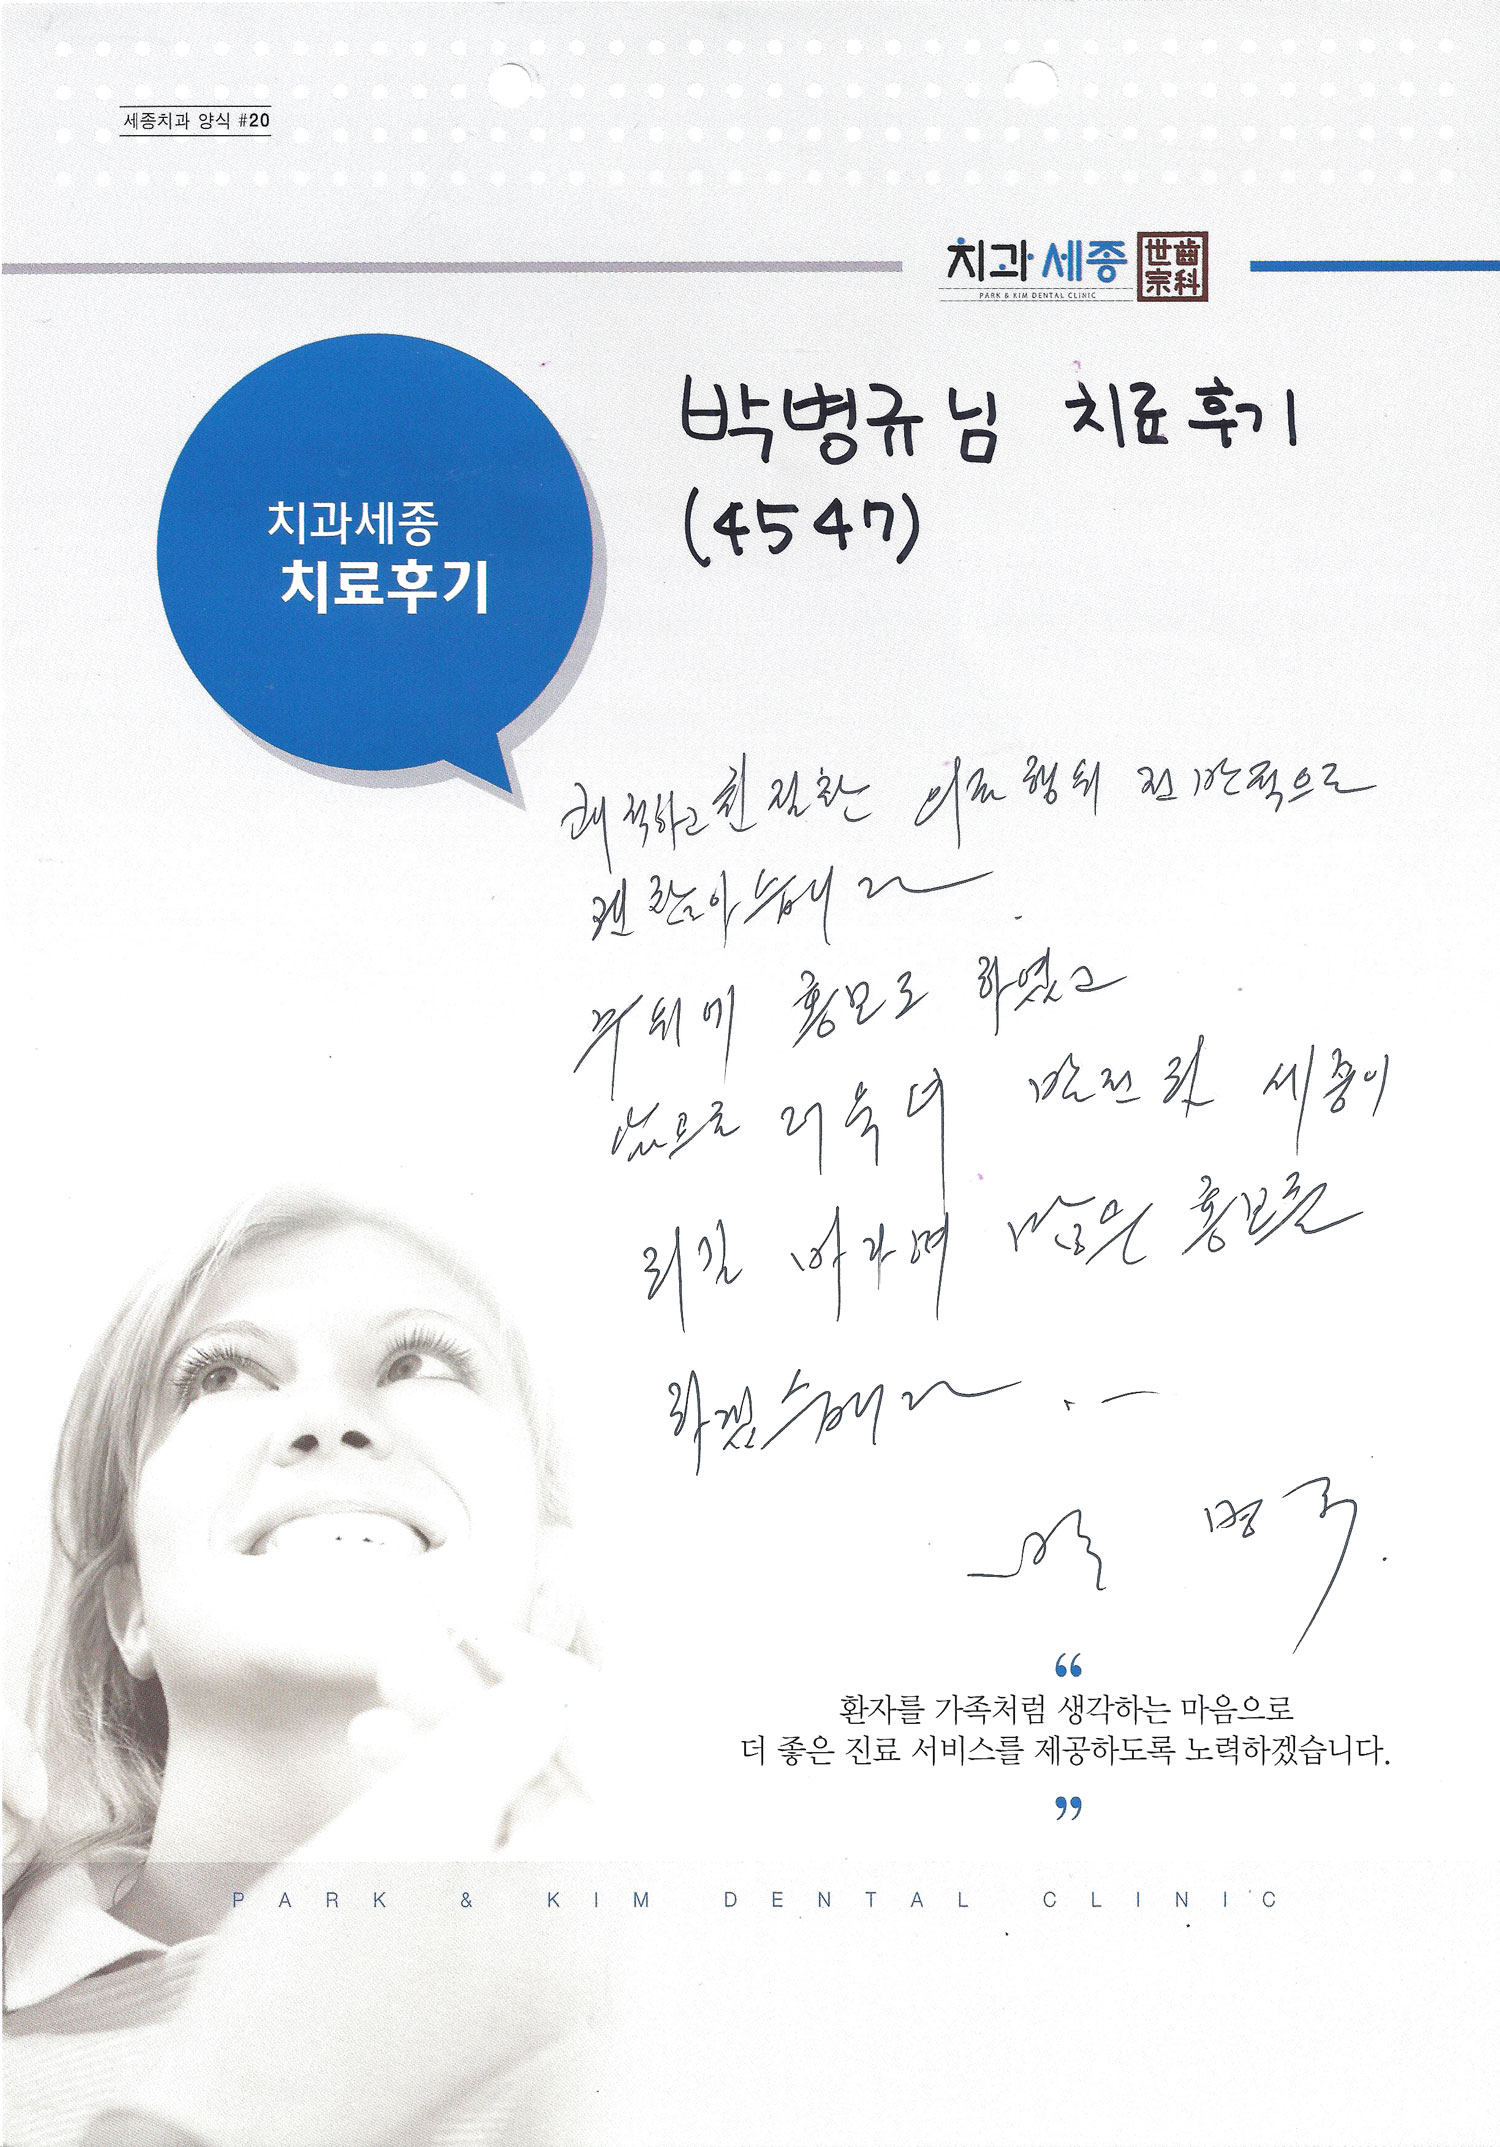 세종치과 양식 #20
치과세종
世齒
宗科
PARK & KIM DENTAL CLINIC
박병규님 치료후기
(4547)
치과세종
치료후기
쾌척하고 친절한 의료행위 전반적으로
괜찮아습니다.
주위에 홍보도 하였고
앞으로 더욱더 발전된 세종이
되길 바라며 많은 홍보를
하겠습니다.
박병규.
“
환자를 가족처럼 생각하는 마음으로
더 좋은 진료 서비스를 제공하도록 노력하겠습니다.
”
PARK & KIM DENTAL CLINIC